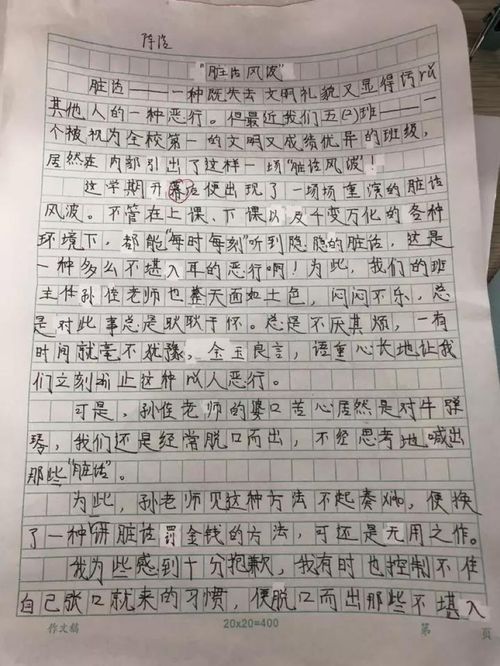 陈浩
"脏话风波"
脏话——一种既失去文明礼貌又显得污以
其他人的一种恶行。但最近我们五(2)班——一
个被视为全校第一的文明又成绩优异的班级,
居然在内部引出了这样一场"脏话风波"!
这学期开幕后便出现了一场场重演的脏话
风波。不管在上课、下课以及千变万化的各种
环境下,都能"每时每刻"听到隐隐的脏话,这是
一种多么不堪入耳的恶行啊!为此,我们的班
主任孙佳老师也整天面如土色,闷闷不乐,总
是对此事总是耿耿于怀。总是不厌其烦,一有
时间就毫不犹豫,金玉良言,语重心长地让我
们立刻停止这种以人恶行。
可是,孙佳老师的婆口苦心居然是对牛弹
琴,我们还是经常脱口而出,不经思考地喊出
那些"脏话"。
为此,孙老师见这种方法不起奏效,便换
了一种讲脏话罚金钱的方法,可还是无用之作。
我为些感到十分抱歉,我有时也控制不住
自己张口就来的习惯,便脱口而出那些不堪入
作文稿 20x20=400 第 页